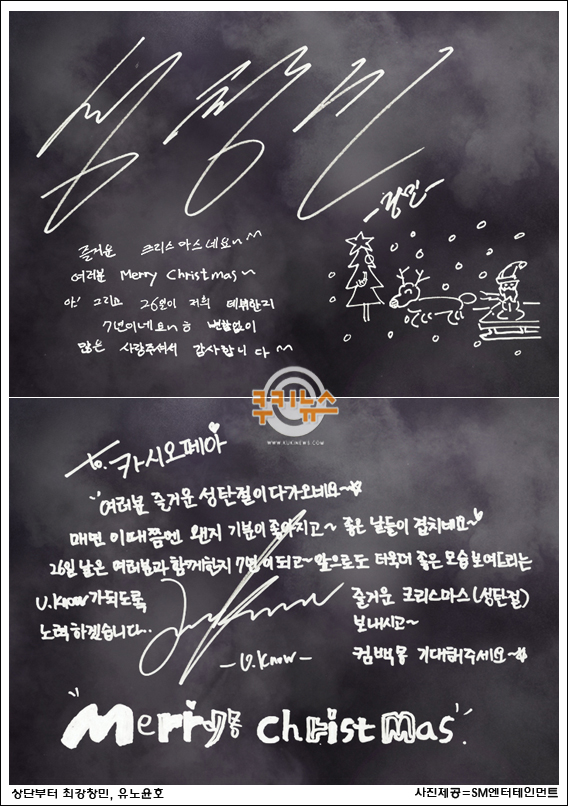 -창민-
즐거운 크리스마스네요~^^
여러분 Merry Christmas~
아! 그리고 26일이 저희 데뷔한지
7년이네요~ㅎ 변함없이
많은 사랑주셔서 감사합니다~^^
쿠키뉴스
WWW.KUKINEWS.COM
to. 카시오페아♡
여러분 즐거운 성탄절이 다가오네요~☆
매번 이때쯤엔 왠지 기분이 좋아지고~ 좋은 날들이 겹치네요~♡
26일 날은 여러분과 함께한지 7년이 되고~ 앞으로도 더욱더 좋은 모습 보여드리는
U.Know가 되도록
노력하겠습니다..
-U.Know-
즐거운 크리스마스(성탄절)
보내시고~
컴백도 기대해주세요~☆
Merry christmas
상단부터 최강창민, 유노윤호
사진제공=SM엔터테인먼트